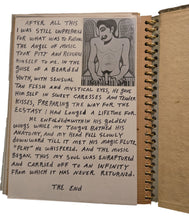 AFTER ALL THIS
I WAS STILL UNPREPARED
FOR WHAT WAS TO FOLLOW.
THE ANGEL OF MUSIC
TOOK PITY AND REVEALED
HIMSELF TO ME. IN THE
GUISE OF A BEARDED
YOUTH, WITH SENSUAL
TAN FLESH AND MYSTICAL EYES, HE GAVE
HIMSELF IN SWEET CARESSES AND TENDER
KISSES, PREPARING THE WAY FOR THE
ECSTASY I HAD LONGED A LIFETIME FOR.
HE ENFOLDED WITHIN HIS GOLDEN
WINGS WHILE MY TONGUE BATHED HIS
ANATOMY, AND MY HEAD FELL SLOWLY
DOWNWARD TILL IT MET HIS MAGIC FLUTE.
"PLAY" HE WHISPERED, AND THE MUSIC
BEGAN. THUS MY SOUL WAS ENRAPTURED
AND CARRIED OFF TO AN INFINITY
FROM WHICH IT HAS NEVER RETURNED.
THE END